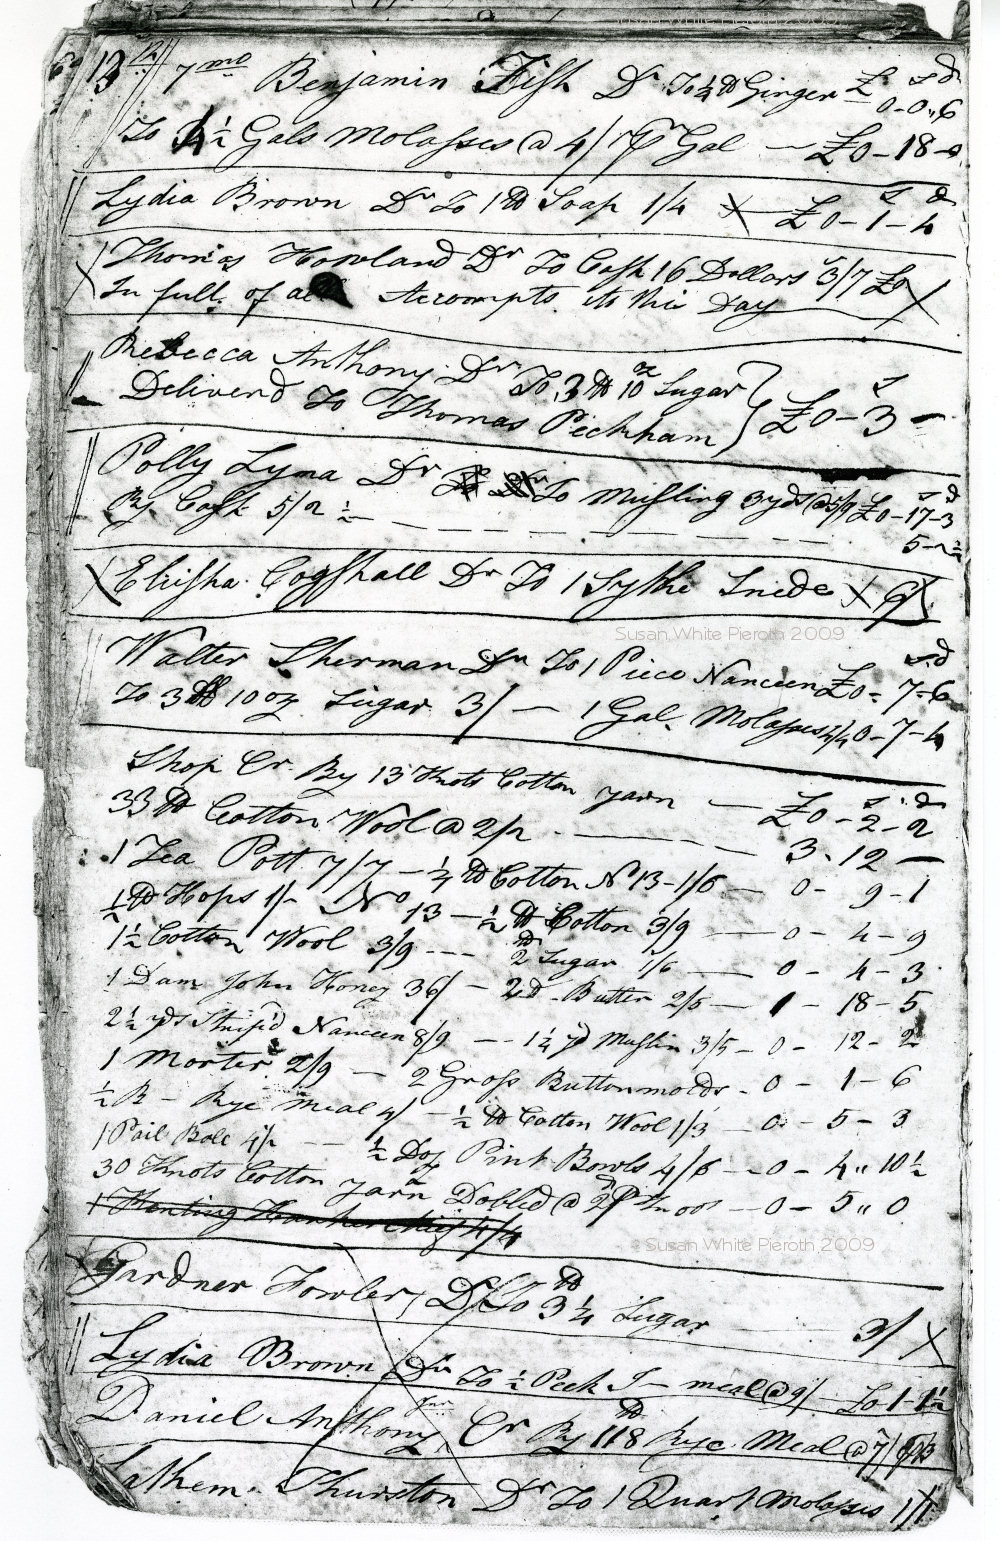 Susan White Pieroth 2009
13 7mo Benjamin Fish Dr To ¼ lb Ginger £ s d
0-0"6
To 4½ Gals Molasses @ 4/ Pr Gal — £0-18-0
s d
Lydia Brown Dr To 1 lb Soap 1/4 X £0-1-4
Thomas Howland Dr To Cash 16 Dollars 3/7 £0
In full of all Accompts to this Day
Rebecca Anthony Dr To 3 lb 10 oz Sugar s
Deliverd To Thomas Peckham £0-3-
Polly Lyma Dr To Musling 3 yds @ 5/9 £0-17-3
By Cash 5/2 ½ 5-2½
Elisha Cogshall Dr To 1 Sythe Snede X 6/
Susan White Pieroth 2009
s d
Walter Sherman Dr To 1 Piece Nanceen £0-7-6
To 3 lb 10 oz Sugar 3/ — 1 Gal. Molasses 4/4 0-7-4
Shop Cr By 13 Knots Cotton yarn — £0-2-2
33 lb Cotton Wool @ 2/2 3-12-
1 Tea Pott 7/7 — ¼ lb Cotton No 13-1/6 — 0-9-1
½ lb Hops 1/- No 13 — ½ lb Cotton 3/9 — 0-4-9
1½ Cotton Wool 3/9 --- 2 lb Sugar 1/6 — 0-4-3
1 Dam John Honey 36/ — 2 lb Butter 2/5 — 1-18-5
2½ yds Strip'd Nanceen 8/9 --- 1¼ yd Muslin 3/5 - 0-12-2
1 Morter 2/9 — 2 Gross Buttonmolds - 0-1-6
½ B - Rye Meal 4/ — ½ lb Cotton Wool 1/3 — 0-5-3
1 Pail Bale 4/2 --- ½ Doz Pint Bowls 4/6 — 0-4"10½
30 Knots Cotton yarn Dobled @ 2d Pr Knot — 0-5"0
1 Kenting Hankerchief 4/4
Susan White Pieroth 2009
Gardner Fowler, Dr To 3¼ lb Sugar 3/ X
Lydia Brown Dr To ½ Peck I- meal @ 9/ £0-1-1½
Daniel Anthony Jnr Cr By 118 lb Rye Meal @ 7/
Lathem Thurston Dr To 1 Quart Molasses 1/1